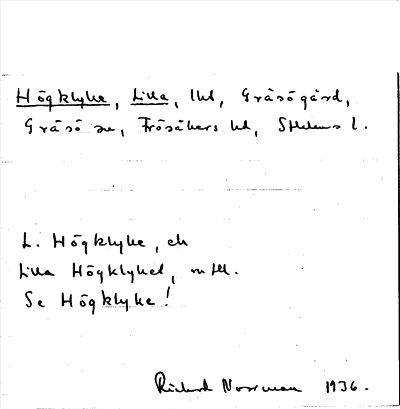 Högklyke, Lilla, lht, Gräsögård,
Gräsö sn, Frösåkers hd, Sthlms l.
L. Högklyke, ek
Lilla Högklyket, mtbl.
Se Högklyke!
Richard Norrman 1936.